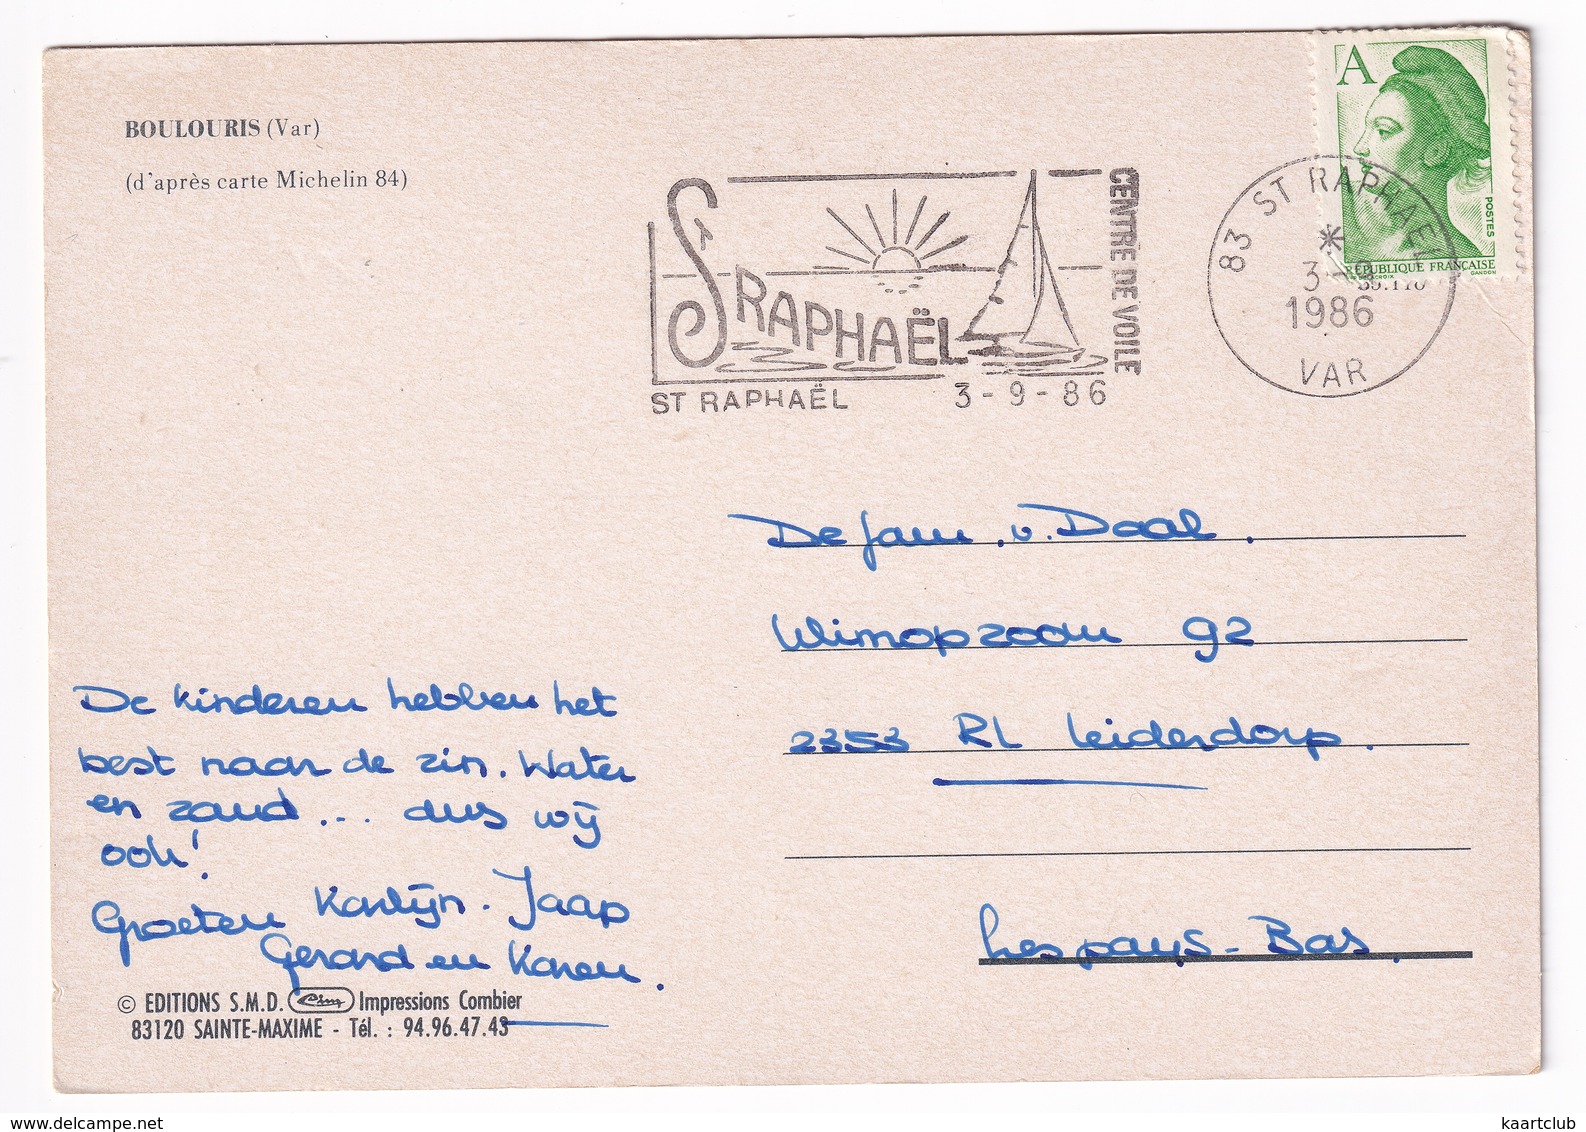 BOULOURIS (Var)
(d'après carte Michelin 84)
A
POSTES
RÉPUBLIQUE FRANÇAISE
GANDON
ST RAPHAËL
CENTRE DE VOILE
ST RAPHAËL 3-9-86
83 ST RAPHAEL
3-9
1986
VAR
De fam. v. Daal.
Wimopzoom 92
2353 RL Leiderdorp.
Les pays-Bas.
De kinderen hebben het
best naar de zin. Water
en zand... dus wij
ook!
Groeten Karlijn. Jaap
Gerard en Karen.
© EDITIONS S.M.D. Cim Impressions Combier
83120 SAINTE-MAXIME - Tél. : 94.96.47.43
www.delcampe.net
kaartclub